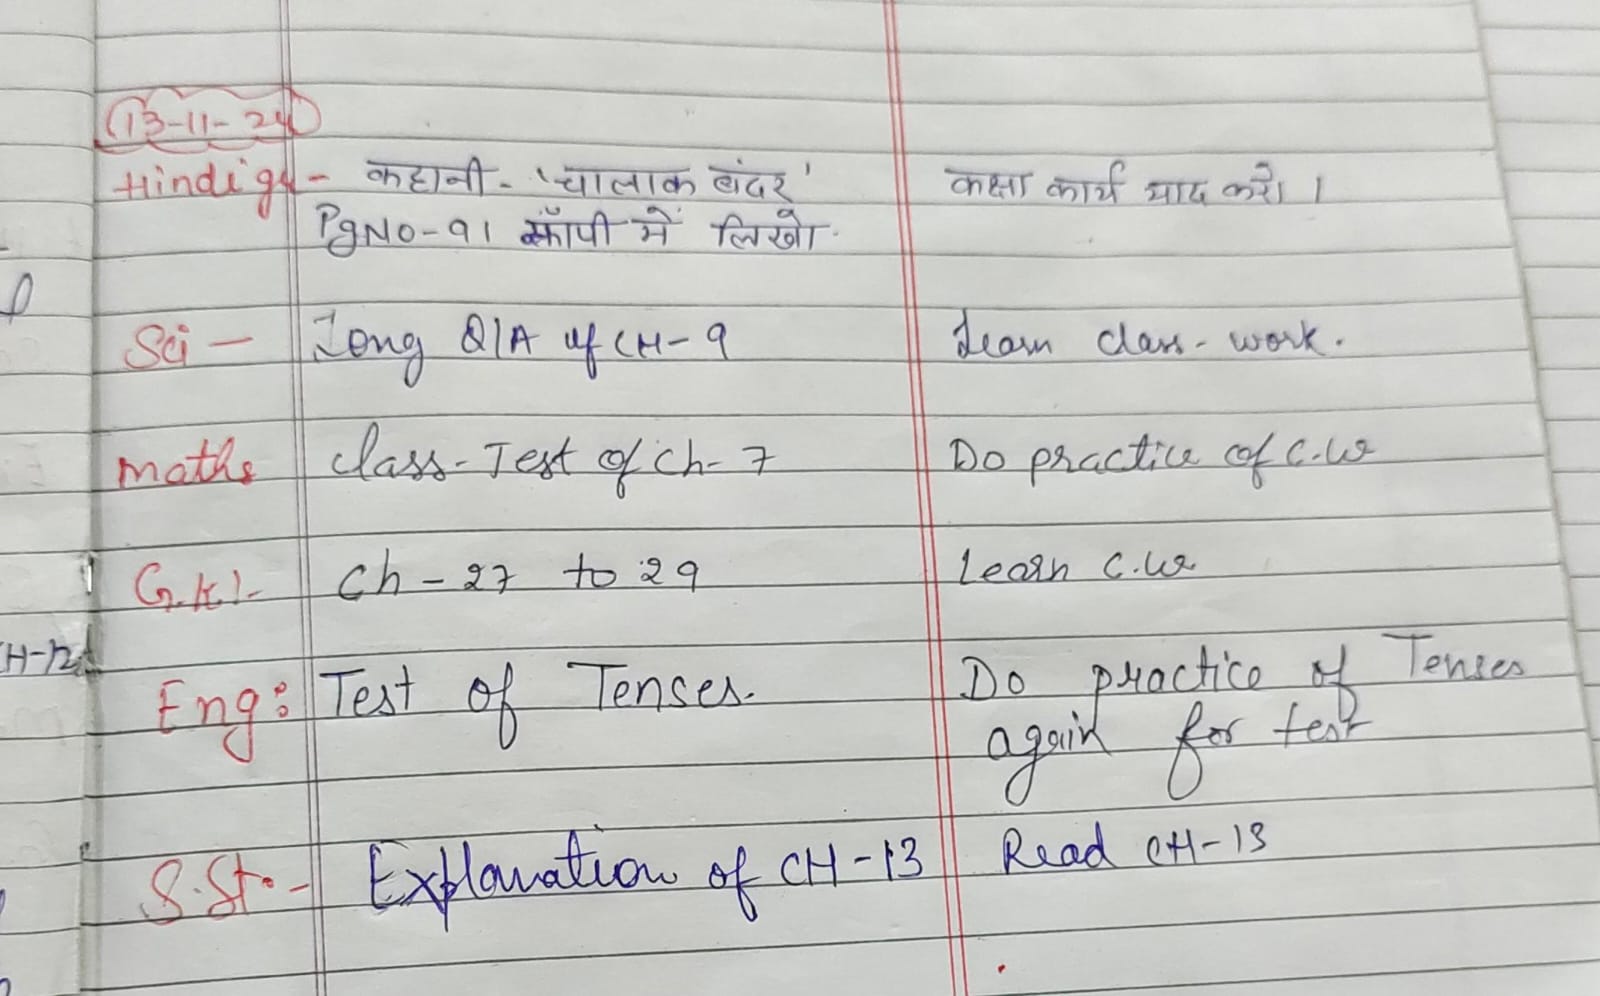 13-11-24
Hindi gr - कहानी - 'चालाक बंदर' कक्षा कार्य याद करो ।
Pg No - 91 कॉपी में लिखो.
Sci - Long Q/A of CH-9 Learn class-work.
Maths Class-Test of Ch-7 Do practice of C.W
G.K!- Ch-27 to 29 Learn C.W
H-12
Eng: Test of Tenses. Do practice of Tenses
again for test
S.St. - Explanation of CH-13 Read CH-13